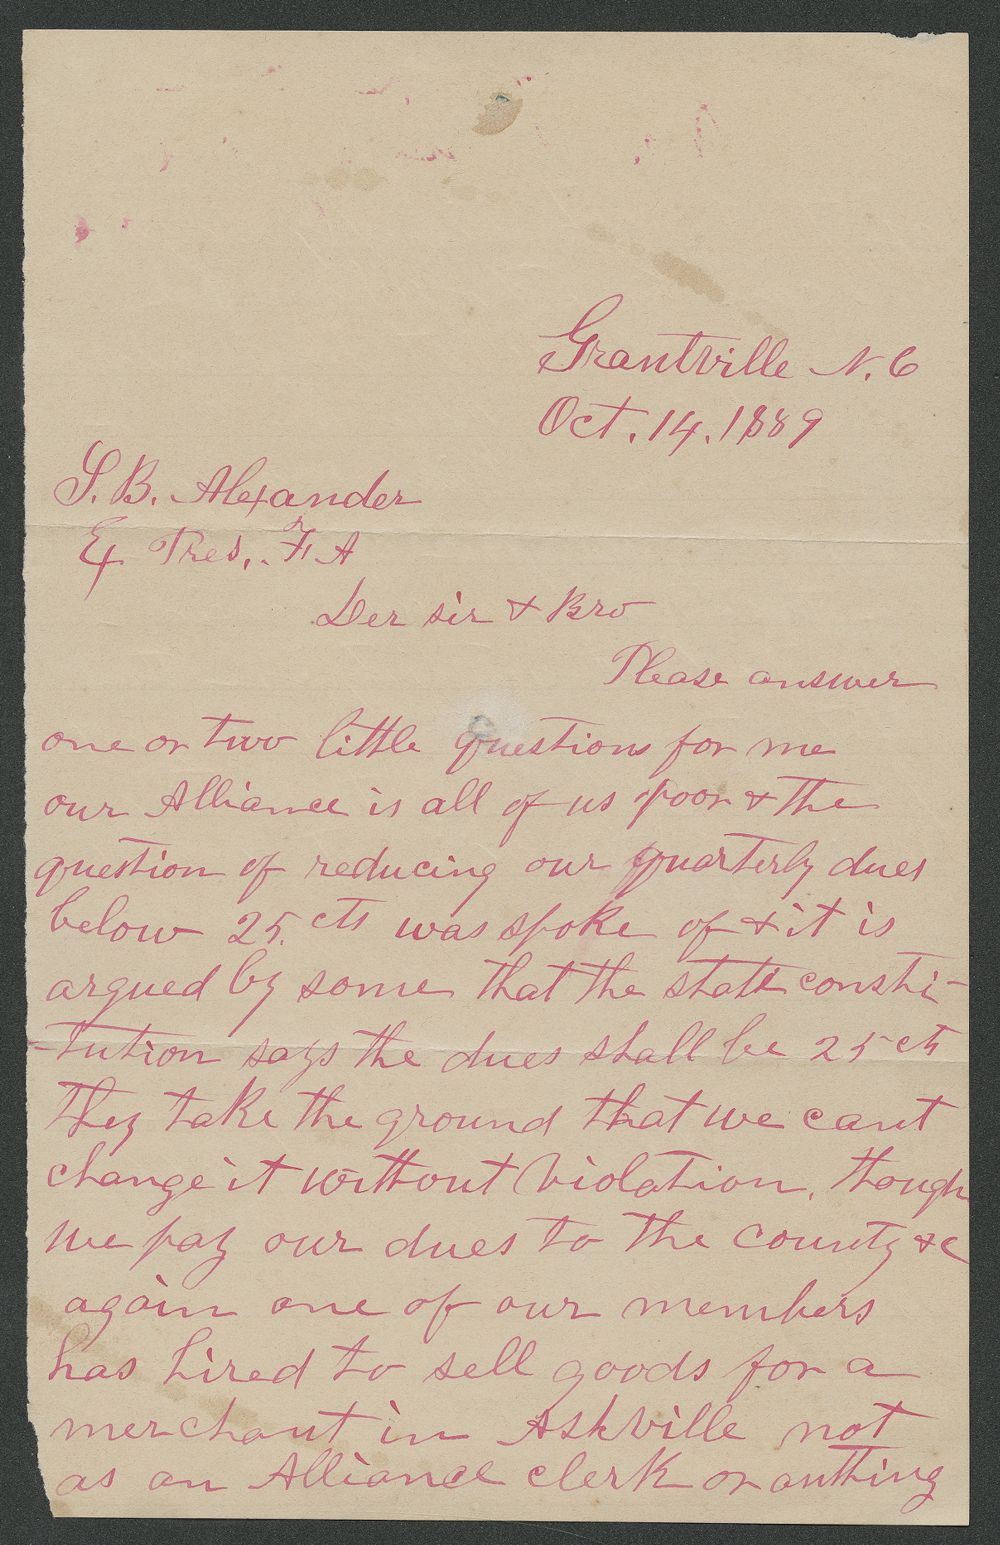 Grantville N. C
Oct. 14. 1889
S. B. Alexander
Ex Pres,. F A
Der sir & Bro
Please answer
one or two little questions for me
our Alliance is all of us poor & the
question of reducing our quarterly dues
below 25. cts was spoke of & it is
argued by some that the state consti-
-tution says the dues shall be 25 cts
They take the ground that we cant
change it without violation, though
we pay our dues to the county &c
again one of our members
has hired to sell goods for a
merchant in Askville not
as an Alliance clerk or anthing